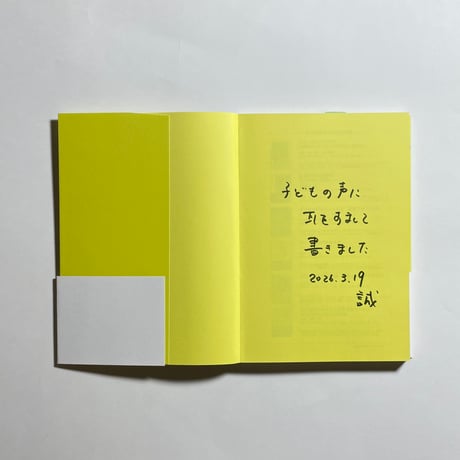 子どもの声に
耳をすまして
書きました
2026.3.19
誠